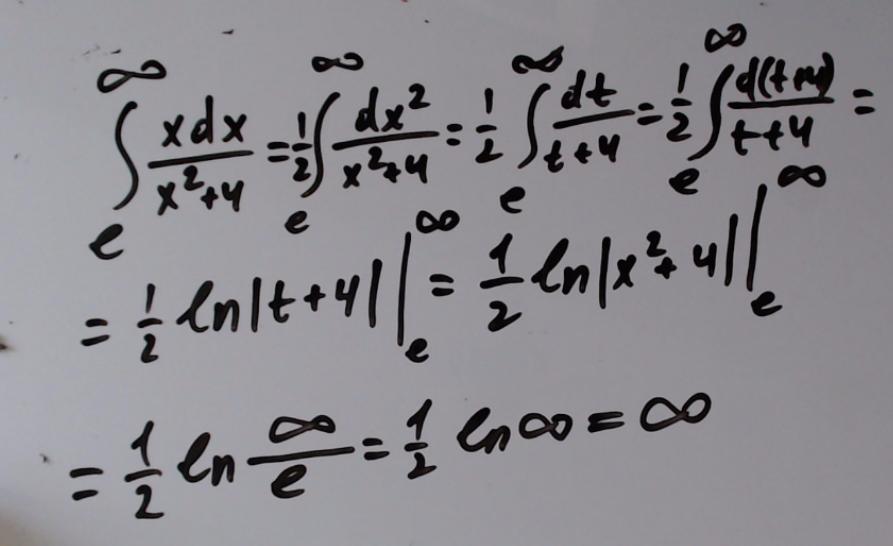 ∫_e^∞ xdx/(x²+4) = 1/2 ∫_e^∞ dx²/(x²+4) = 1/2 ∫_e^∞ dt/(t+4) = 1/2 ∫_e^∞ d(t+4)/(t+4) =
= 1/2 ln|t+4| |_e^∞ = 1/2 ln|x²+4| |_e^∞
= 1/2 ln ∞/e = 1/2 ln∞ = ∞